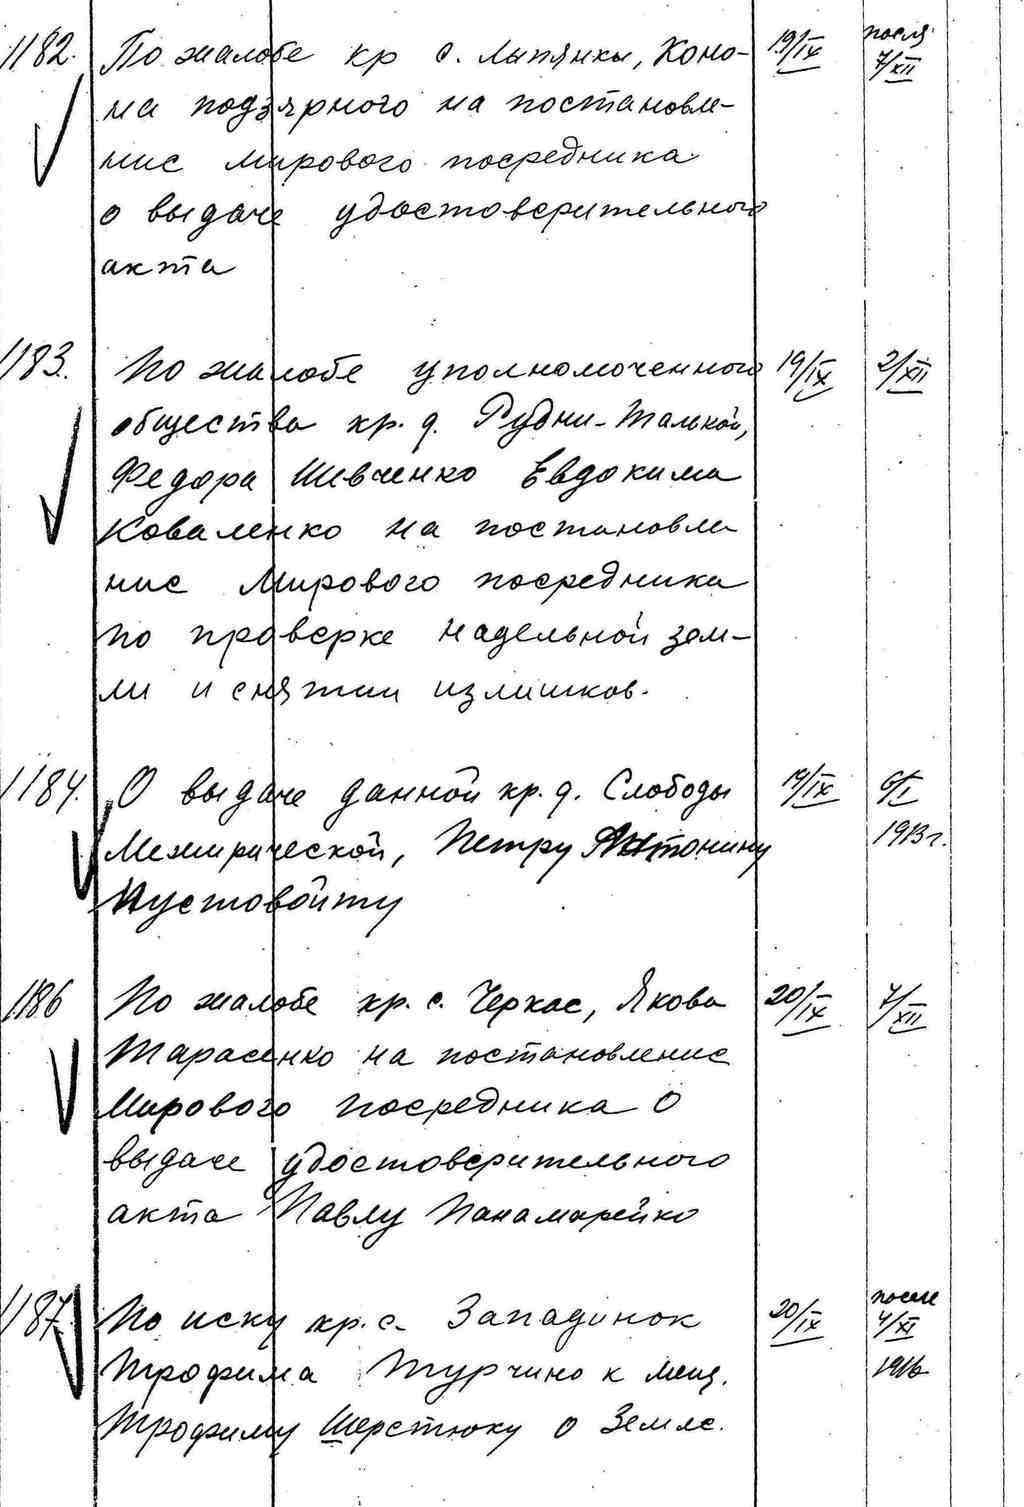 1182. По жалобе кр с. Липянки, Коно- 19/IX после
на подзярного на постановле- 7/XII
ние мирового посредника
о выдаче удостоверительного
акта
1183. По жалобе уполномоченного 19/IX 2/XII
общества кр. д. Рудни-Тальской,
Федора Шевченко Евдокима
Коваленко на постановле
ние Мирового посредника
по проверке надельной зем-
ли и снятии излишков.
1184. О выдаче данной кр. д. Слободы 19/IX 9/I
Межирической, Петру Антонину 1913 г.
Пустовойту
1186 По жалобе кр. с. Черкас, Якова 20/IX 7/XII
Тарасенко на постановление
Мирового посредника о
выдаче удостоверительного
акта Павлу Панамарейко
1187. По иску кр. с. Западинок 20/IX после
Трофима Турчино к мещ. 4/XI
Трофиму Шерстюку о Земле. 1916